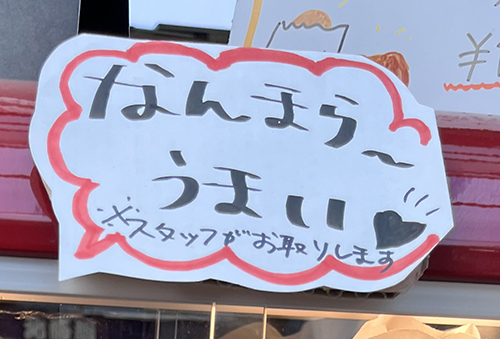 なんまら~
うまい♥
※スタッフがお取りします
¥